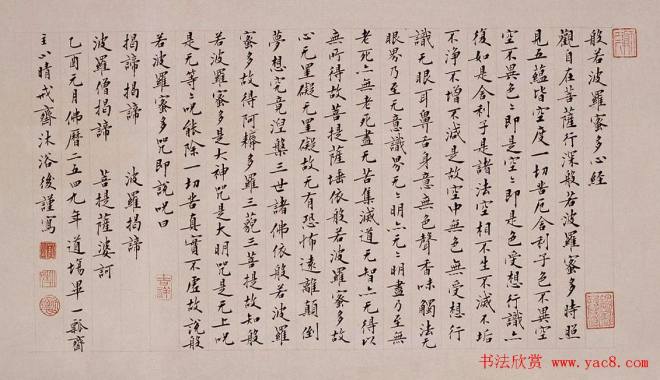 般若波羅蜜多心經
觀自在菩薩行深般若波羅蜜多時照
見五蘊皆空度一切苦厄舍利子色不異空
空不異色色即是空空即是色受想行識亦
復如是舍利子是諸法空相不生不滅不垢
不淨不增不減是故空中無色無受想行
識无眼耳鼻舌身意無色聲香味觸法无
眼界乃至无意識界无無明亦无無明盡乃至無
老死亦無老死盡无苦集滅道无智亦无得以
無所得故菩提薩埵依般若波羅蜜多故
心无罣礙无罣礙故无有恐怖遠離顛倒
夢想究竟涅槃三世諸佛依般若波羅
蜜多故得阿耨多羅三藐三菩提故知般
若波羅蜜多是大神咒是大明咒是无上咒
是无等等咒能除一切苦真實不虛故說般
若波羅蜜多咒即說咒曰
揭諦揭諦 波羅揭諦
波羅僧揭諦 菩提薩婆訶
乙酉元月佛曆二五四九年道場畢一瓢齋
主 晴戒齋沐浴後謹寫
书法欣赏 www.yac8.com